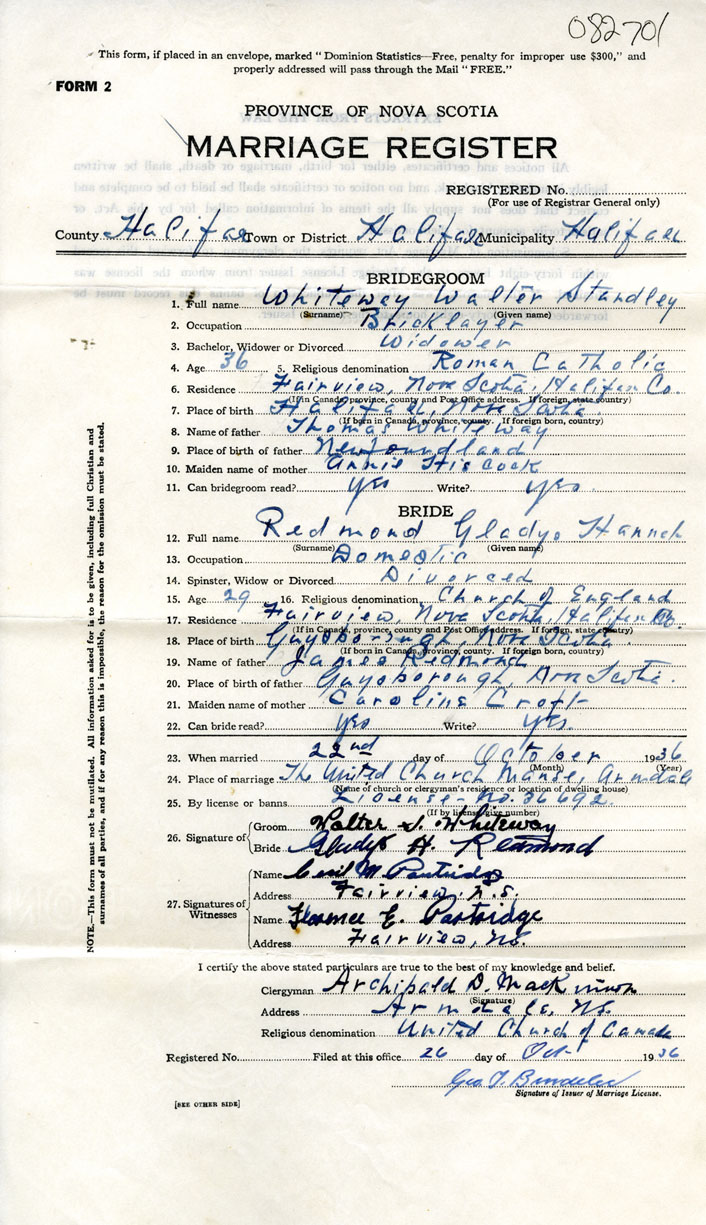 082701
This form, if placed in an envelope, marked "Dominion Statistics—Free, penalty for improper use $300," and
properly addressed will pass through the Mail "FREE."
FORM 2
PROVINCE OF NOVA SCOTIA
MARRIAGE REGISTER
REGISTERED No.
(For use of Registrar General only)
County Halifax Town or District Halifax Municipality Halifax
BRIDEGROOM
1. Full name Whiteway Walter Standley
(Surname) (Given name)
2. Occupation Bricklayer
3. Bachelor, Widower or Divorced Widower
4. Age 36 5. Religious denomination Roman Catholic
6. Residence Fairview, Nova Scotia, Halifax Co.
(If in Canada, province, county and Post Office address. If foreign, state country)
7. Place of birth Halifax, Nova Scotia
(If born in Canada, province, county. If foreign born, country)
8. Name of father Thomas Whiteway
9. Place of birth of father Newfoundland
10. Maiden name of mother Annie Hiscock
11. Can bridegroom read? yes Write? yes.
BRIDE
12. Full name Redmond Gladys Hannah
(Surname) (Given name)
13. Occupation Domestic
14. Spinster, Widow or Divorced Divorced
15. Age 29 16. Religious denomination Church of England
17. Residence Fairview, Nova Scotia, Halifax Co.
(If in Canada, province, county and Post Office address. If foreign, state country)
18. Place of birth Guysborough, Nova Scotia
(If born in Canada, province, county. If foreign born, country)
19. Name of father James Redmond
20. Place of birth of father Guysborough Nova Scotia.
21. Maiden name of mother Caroline Croft
22. Can bride read? yes Write? yes.
23. When married 22nd day of October 1936
(Month) (Year)
24. Place of marriage The United Church Manse, Armdale
(Name of church or clergyman's residence or location of dwelling house)
25. By license or banns License - No. 36692
(If by license, give number)
26. Signature of Groom Walter S. Whiteway
Bride Gladys H. Redmond
27. Signatures of Witnesses
Name Cecil M. Partridge
Address Fairview, N.S.
Name Florence E. Partridge
Address Fairview, N.S.
I certify the above stated particulars are true to the best of my knowledge and belief.
Clergyman Archibald D. MacKinnon
(Signature)
Address Armdale, N.S.
Religious denomination United Church of Canada
Registered No. Filed at this office 26 day of Oct 1936
Geo. T.
Signature of Issuer of Marriage License.
[SEE OTHER SIDE]
NOTE.—This form must not be mutilated. All information asked for is to be given, including full Christian and
surnames of all parties, and if for any reason this is impossible, the reason for the omission must be stated.